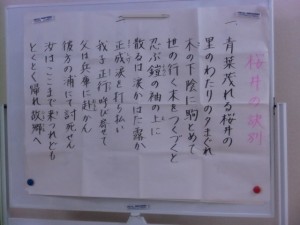 桜井の訣別
一 青葉茂れる桜井の
里のわたりの夕まぐれ
木の下陰に駒とめて
世の行く末をつくづくと
忍ぶ鎧の袖の上に
散るは涙かはた露か
正成涙を打ち払い
我子正行呼び寄せて
父は兵庫に赴かん
彼方の浦にて討死せん
汝はここまで来つれども
とくとく帰れ故郷へ